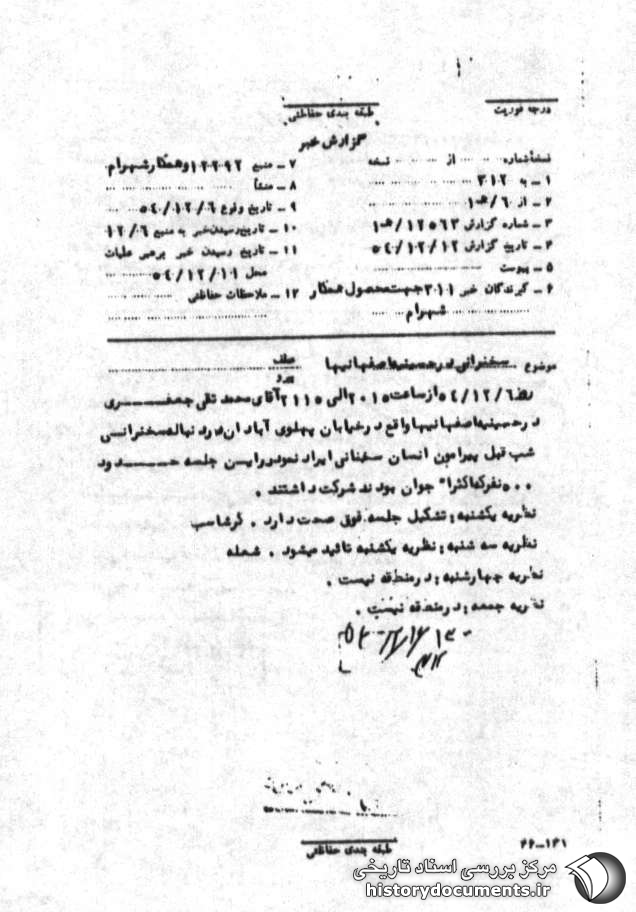 درجه فوریت
طبقه بندی حفاظتی
گزارش خبر
نسخه شماره از نسخه
۱ـ به ۳۱۲
۲ـ از ۶/ه‍ ۱
۳ـ شماره گزارش ۱۲۵۶۳/ه‍ ۱
۴ـ تاریخ گزارش ۵۴/۱۲/۱۲
۵ـ پیوست
۶ـ گیرندگان خبر ۳۱۱ جهت محصول همکار
شهرام
۷ـ منبع ۱۲۲۹۲ و همکار شهرام
۸ـ منشأ
۹ـ تاریخ وقوع ۵۴/۱۲/۶
۱۰ـ تاریخ رسیدن خبر به منبع ۱۲/۶
۱۱ـ تاریخ رسیدن خبر برهبر عملیات
محل ۵۴/۱۲/۱۱
۱۲ـ ملاحظات حفاظتی
موضوع سخنرانی در حسینیه اصفهانیها
عطف
پیرو
روز ۵۴/۱۲/۶ از ساعت ۲۰۱۵ الی ۲۱۱۵ آقای محمد تقی جعفری
در حسینیه اصفهانیها واقع در خیابان پهلوی آبادان در دنباله سخنرانی
شب قبل پیرامون انسان سخنانی ایراد نمود در این جلسه حدود
۵۰۰ نفر که اکثرا" جوان بودند شرکت داشتند .
نظریه یکشنبه : تشکیل جلسه فوق صحت دارد . گرشاسب
نظریه سه شنبه : نظریه یکشنبه تائید میشود . شعله
نظریه چهارشنبه : در منطقه نیست .
نظریه جمعه : در منطقه نیست .
طبقه بندی حفاظتی
۱۶۱ــ۶۶
مرکز بررسی اسناد تاریخی
historydocuments.ir